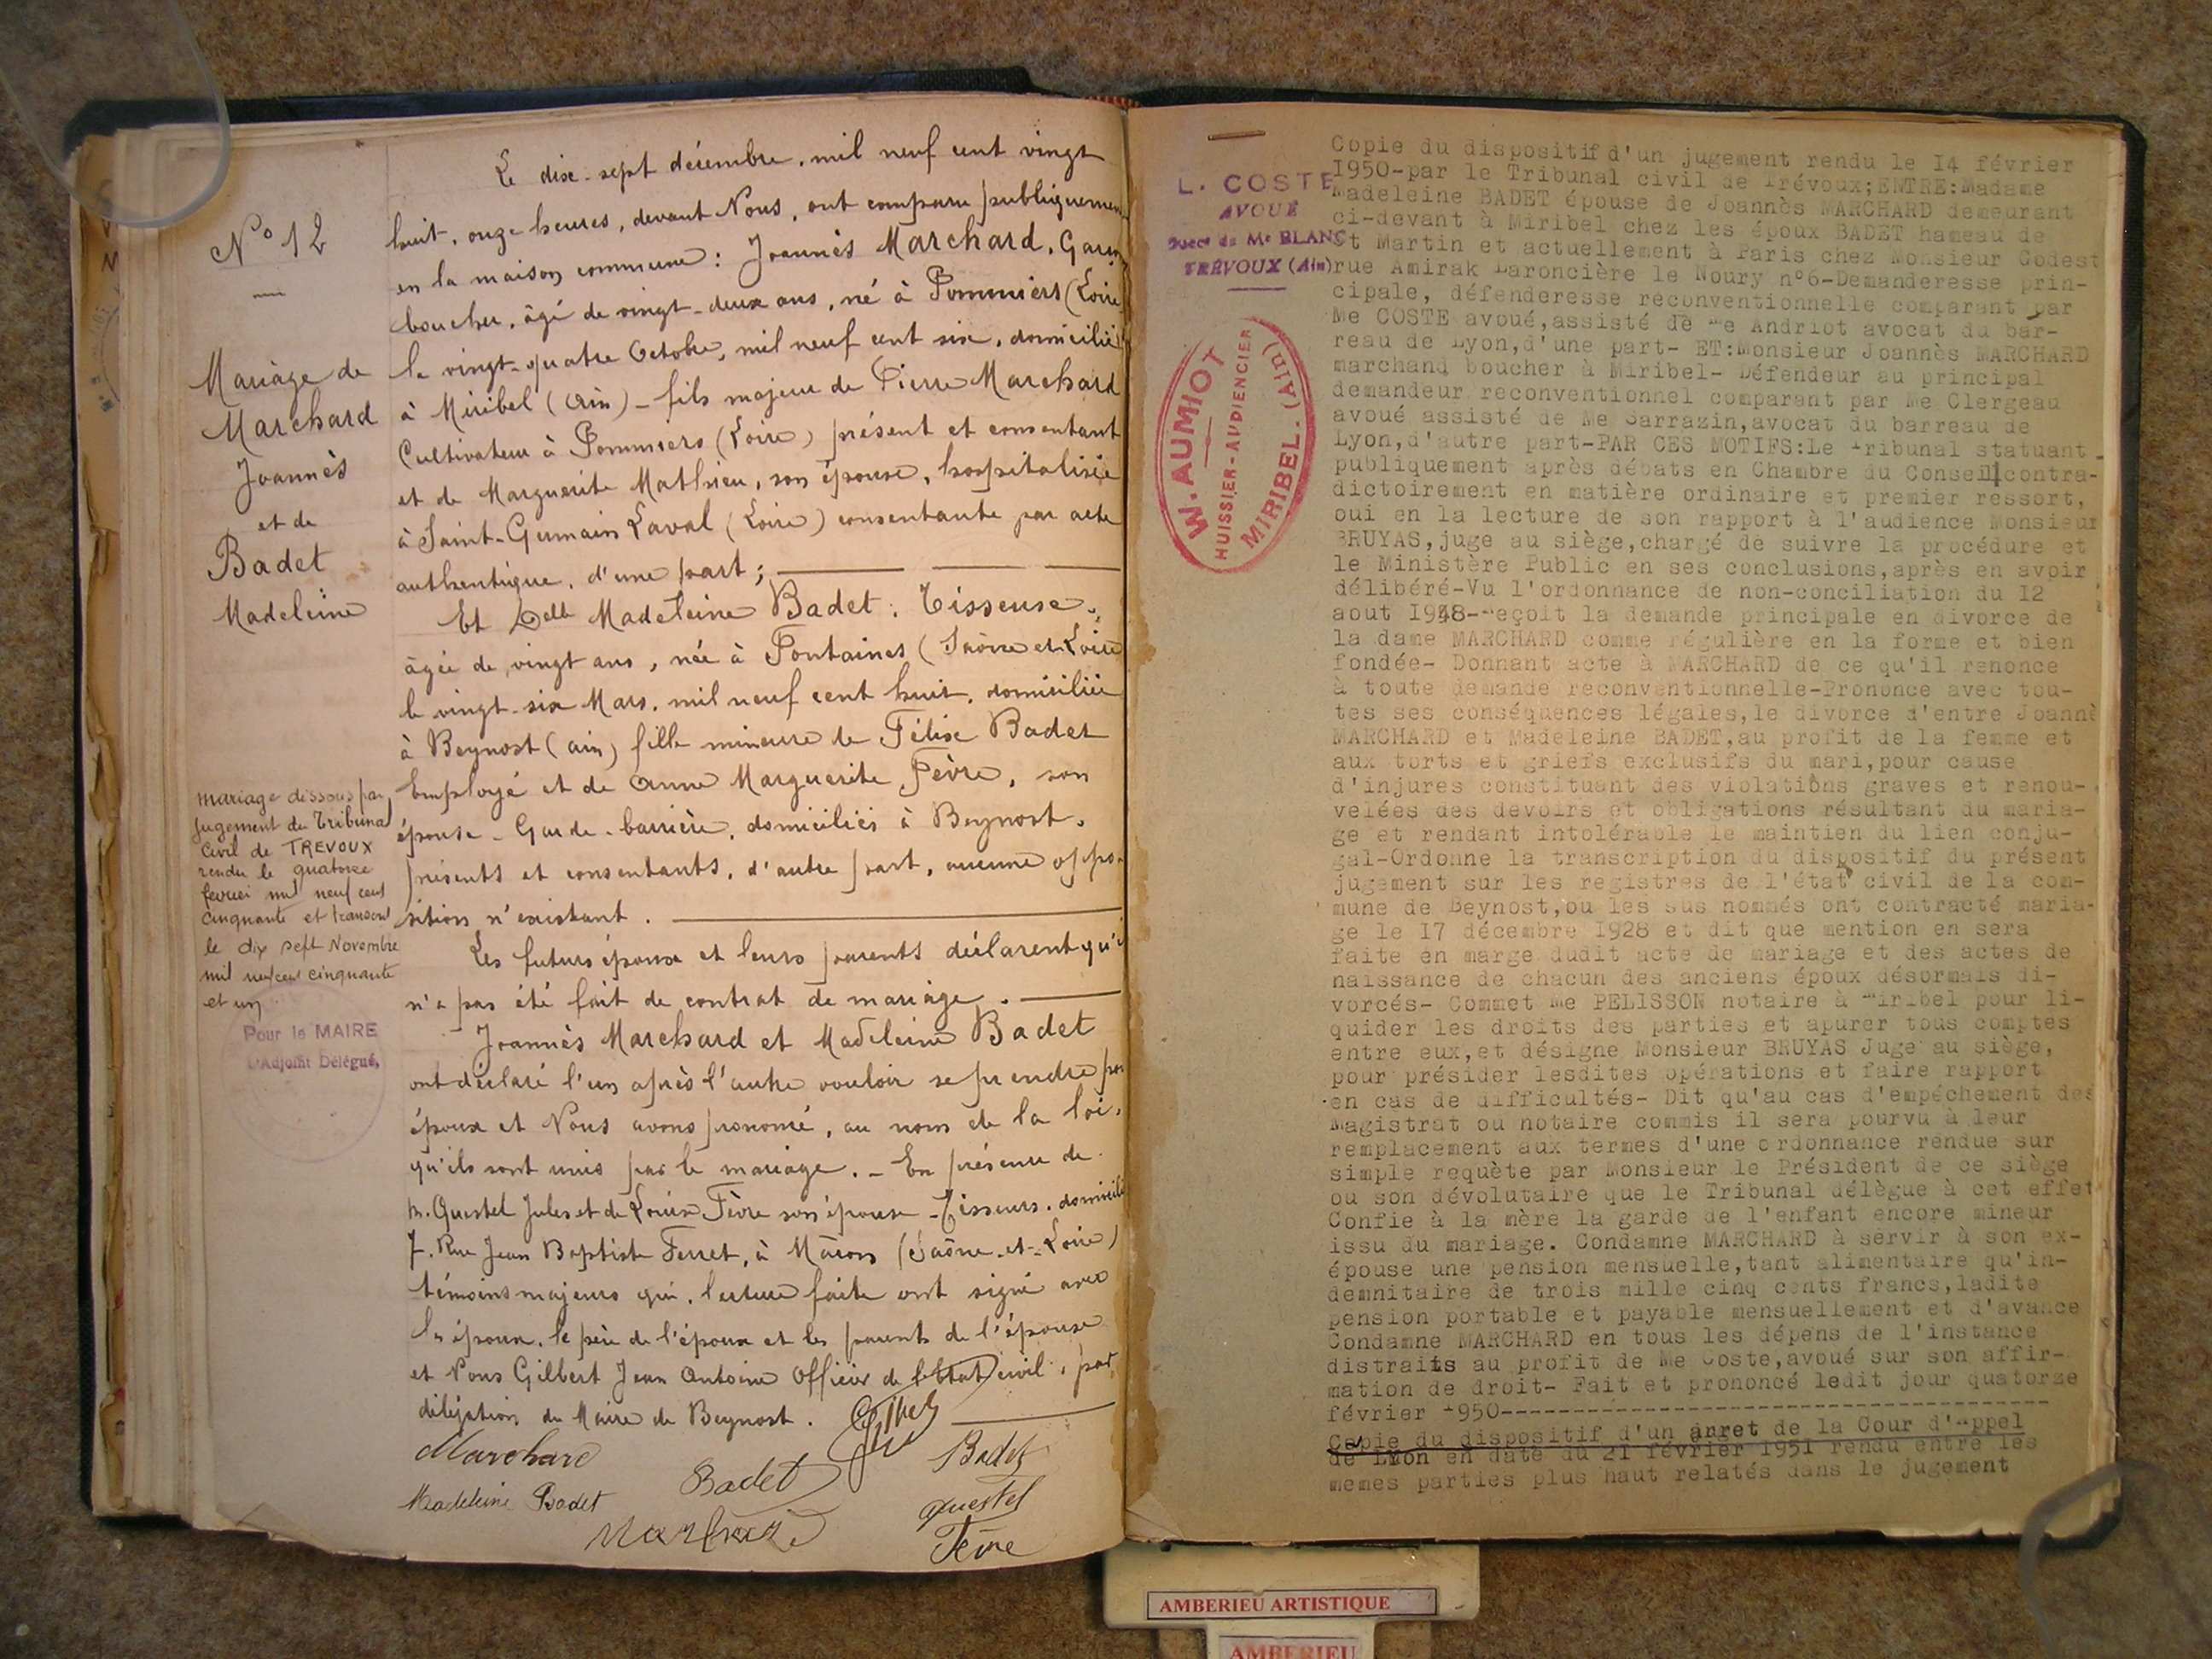 Le dix-sept décembre, mil neuf cent vingt
huit, onze heures, devant Nous, ont comparu publiquement
en la maison commune : Joannès Marchard, Garçon
boucher, âgé de vingt-deux ans, né à Pommiers (Loire)
le vingt-quatre Octobre, mil neuf cent six, domicilié
à Miribel (Ain) - fils majeur de Pierre Marchard
Cultivateur à Pommiers (Loire) présent et consentant
et de Marguerite Mathieu, son épouse, hospitalisée
à Saint-Germain Laval (Loire) consentante par acte
authentique, d'une part ;
Et Delle Madeleine Badet, Tisseuse,
âgée de vingt ans, née à Fontaines (Saône et Loire
le vingt-six Mars, mil neuf cent huit, domiciliée
à Beynost (ain) fille mineure de Félix Badet
Employé et de Anne Marguerite Fèvre, son
épouse - Garde-barrière, domiciliés à Beynost,
présents et consentants, d'autre part, aucune oppo-
sition n'existant.
Les futurs époux et leurs parents déclarent qu'i
n'a pas été fait de contrat de mariage.
Joannès Marchard et Madeleine Badet
ont déclaré l'un après l'autre vouloir se prendre pou
époux et Nous avons prononcé, au nom de la loi,
qu'ils sont unis par le mariage. - En présence de
M. Questel Jules et de Louise Fèvre son épouse - Tisseurs, domicili
7, Rue Jean Baptiste Ferret, à Mâcon (Saône-et-Loire)
témoins majeurs qui, lecture faite ont signé avec
les époux, le père de l'époux et les parents de l'épouse
et Nous Gilbert Jean Antoine Officier de l'Etat civil, par
délégation du Maire de Beynost.
Marchard
Badet
Badet
Madeleine Badet
Questel
Marchard
Fèvre
N° 12
Mariage de
Marchard
Joannès
et de
Badet
Madeleine
mariage dissous par
jugement du Tribunal
Civil de TREVOUX
rendu le quatorze
fevrier mil neuf cent
cinquante et transcrit
le dix sept Novembre
mil neuf cent cinquante
et un
Pour le MAIRE
L'Adjoint Délégué,
L. COSTE
AVOUÉ
Succr de Me BLANC
TRÉVOUX (Ain)
W. AUMIOT
HUISSIER-AUDIENCIER
MIRIBEL. (AIN)
Copie du dispositif d'un jugement rendu le I4 février
I950-par le Tribunal civil de Trévoux;ENTRE:Madame
Madeleine BADET épouse de Joannès MARCHARD demeurant
ci-devant à Miribel chez les époux BADET hameau de
St Martin et actuellement à Paris chez Monsieur Codest
rue Amirak Laroncière le Noury n°6-Demanderesse prin-
cipale, défenderesse reconventionnelle comparant par
Me COSTE avoué,assisté de Me Andriot avocat du bar-
reau de Lyon,d'une part- ET:Monsieur Joannès MARCHARD
marchand boucher à Miribel- Défendeur au principal
demandeur reconventionnel comparant par Me Clergeau
avoué assisté de Me Sarrazin,avocat du barreau de
Lyon,d'autre part-PAR CES MOTIFS:Le Tribunal statuant
publiquement après débats en Chambre du Conseil contra-
dictoirement en matière ordinaire et premier ressort,
oui en la lecture de son rapport à l'audience Monsieur
BRUYAS,juge au siège,chargé de suivre la procédure et
le Ministère Public en ses conclusions,après en avoir
délibéré-Vu l'ordonnance de non-conciliation du I2
aout I948-Reçoit la demande principale en divorce de
la dame MARCHARD comme régulière en la forme et bien
fondée- Donnant acte à MARCHARD de ce qu'il renonce
à toute demande reconventionnelle-Prononce avec tou-
tes ses conséquences légales,le divorce d'entre Joannè
MARCHARD et Madeleine BADET,au profit de la femme et
aux torts et griefs exclusifs du mari,pour cause
d'injures constituant des violations graves et renou-
velées des devoirs et obligations résultant du maria-
ge et rendant intolérable le maintien du lien conju-
gal-Ordonne la transcription du dispositif du présent
jugement sur les registres de l'état civil de la com-
mune de Beynost,ou les sus nommés ont contracté maria-
ge le I7 décembre I928 et dit que mention en sera
faite en marge dudit acte de mariage et des actes de
naissance de chacun des anciens époux désormais di-
vorcés- Commet Me PELISSON notaire à Miribel pour li-
quider les droits des parties et apurer tous comptes
entre eux,et désigne Monsieur BRUYAS Juge au siège,
pour présider lesdites opérations et faire rapport
en cas de difficultés- Dit qu'au cas d'empéchement des
Magistrat ou notaire commis il sera pourvu à leur
remplacement aux termes d'une ordonnance rendue sur
simple requète par Monsieur le Président de ce siège
ou son dévolutaire que le Tribunal délègue à cet effet
Confie à la mère la garde de l'enfant encore mineur
issu du mariage. Condamne MARCHARD à servir à son ex-
épouse une pension mensuelle,tant alimentaire qu'in-
demnitaire de trois mille cinq cents francs,ladite
pension portable et payable mensuellement et d'avance
Condamne MARCHARD en tous les dépens de l'instance
distraits au profit de Me Coste,avoué sur son affir-
mation de droit- Fait et prononcé ledit jour quatorze
février I950-----------------------------------
Copie du dispositif d'un arret de la Cour d'Appel
de Lyon en date du 2I février I95I rendu entre les
memes parties plus haut relatés dans le jugement
AMBERIEU ARTISTIQUE
AMBERIEU